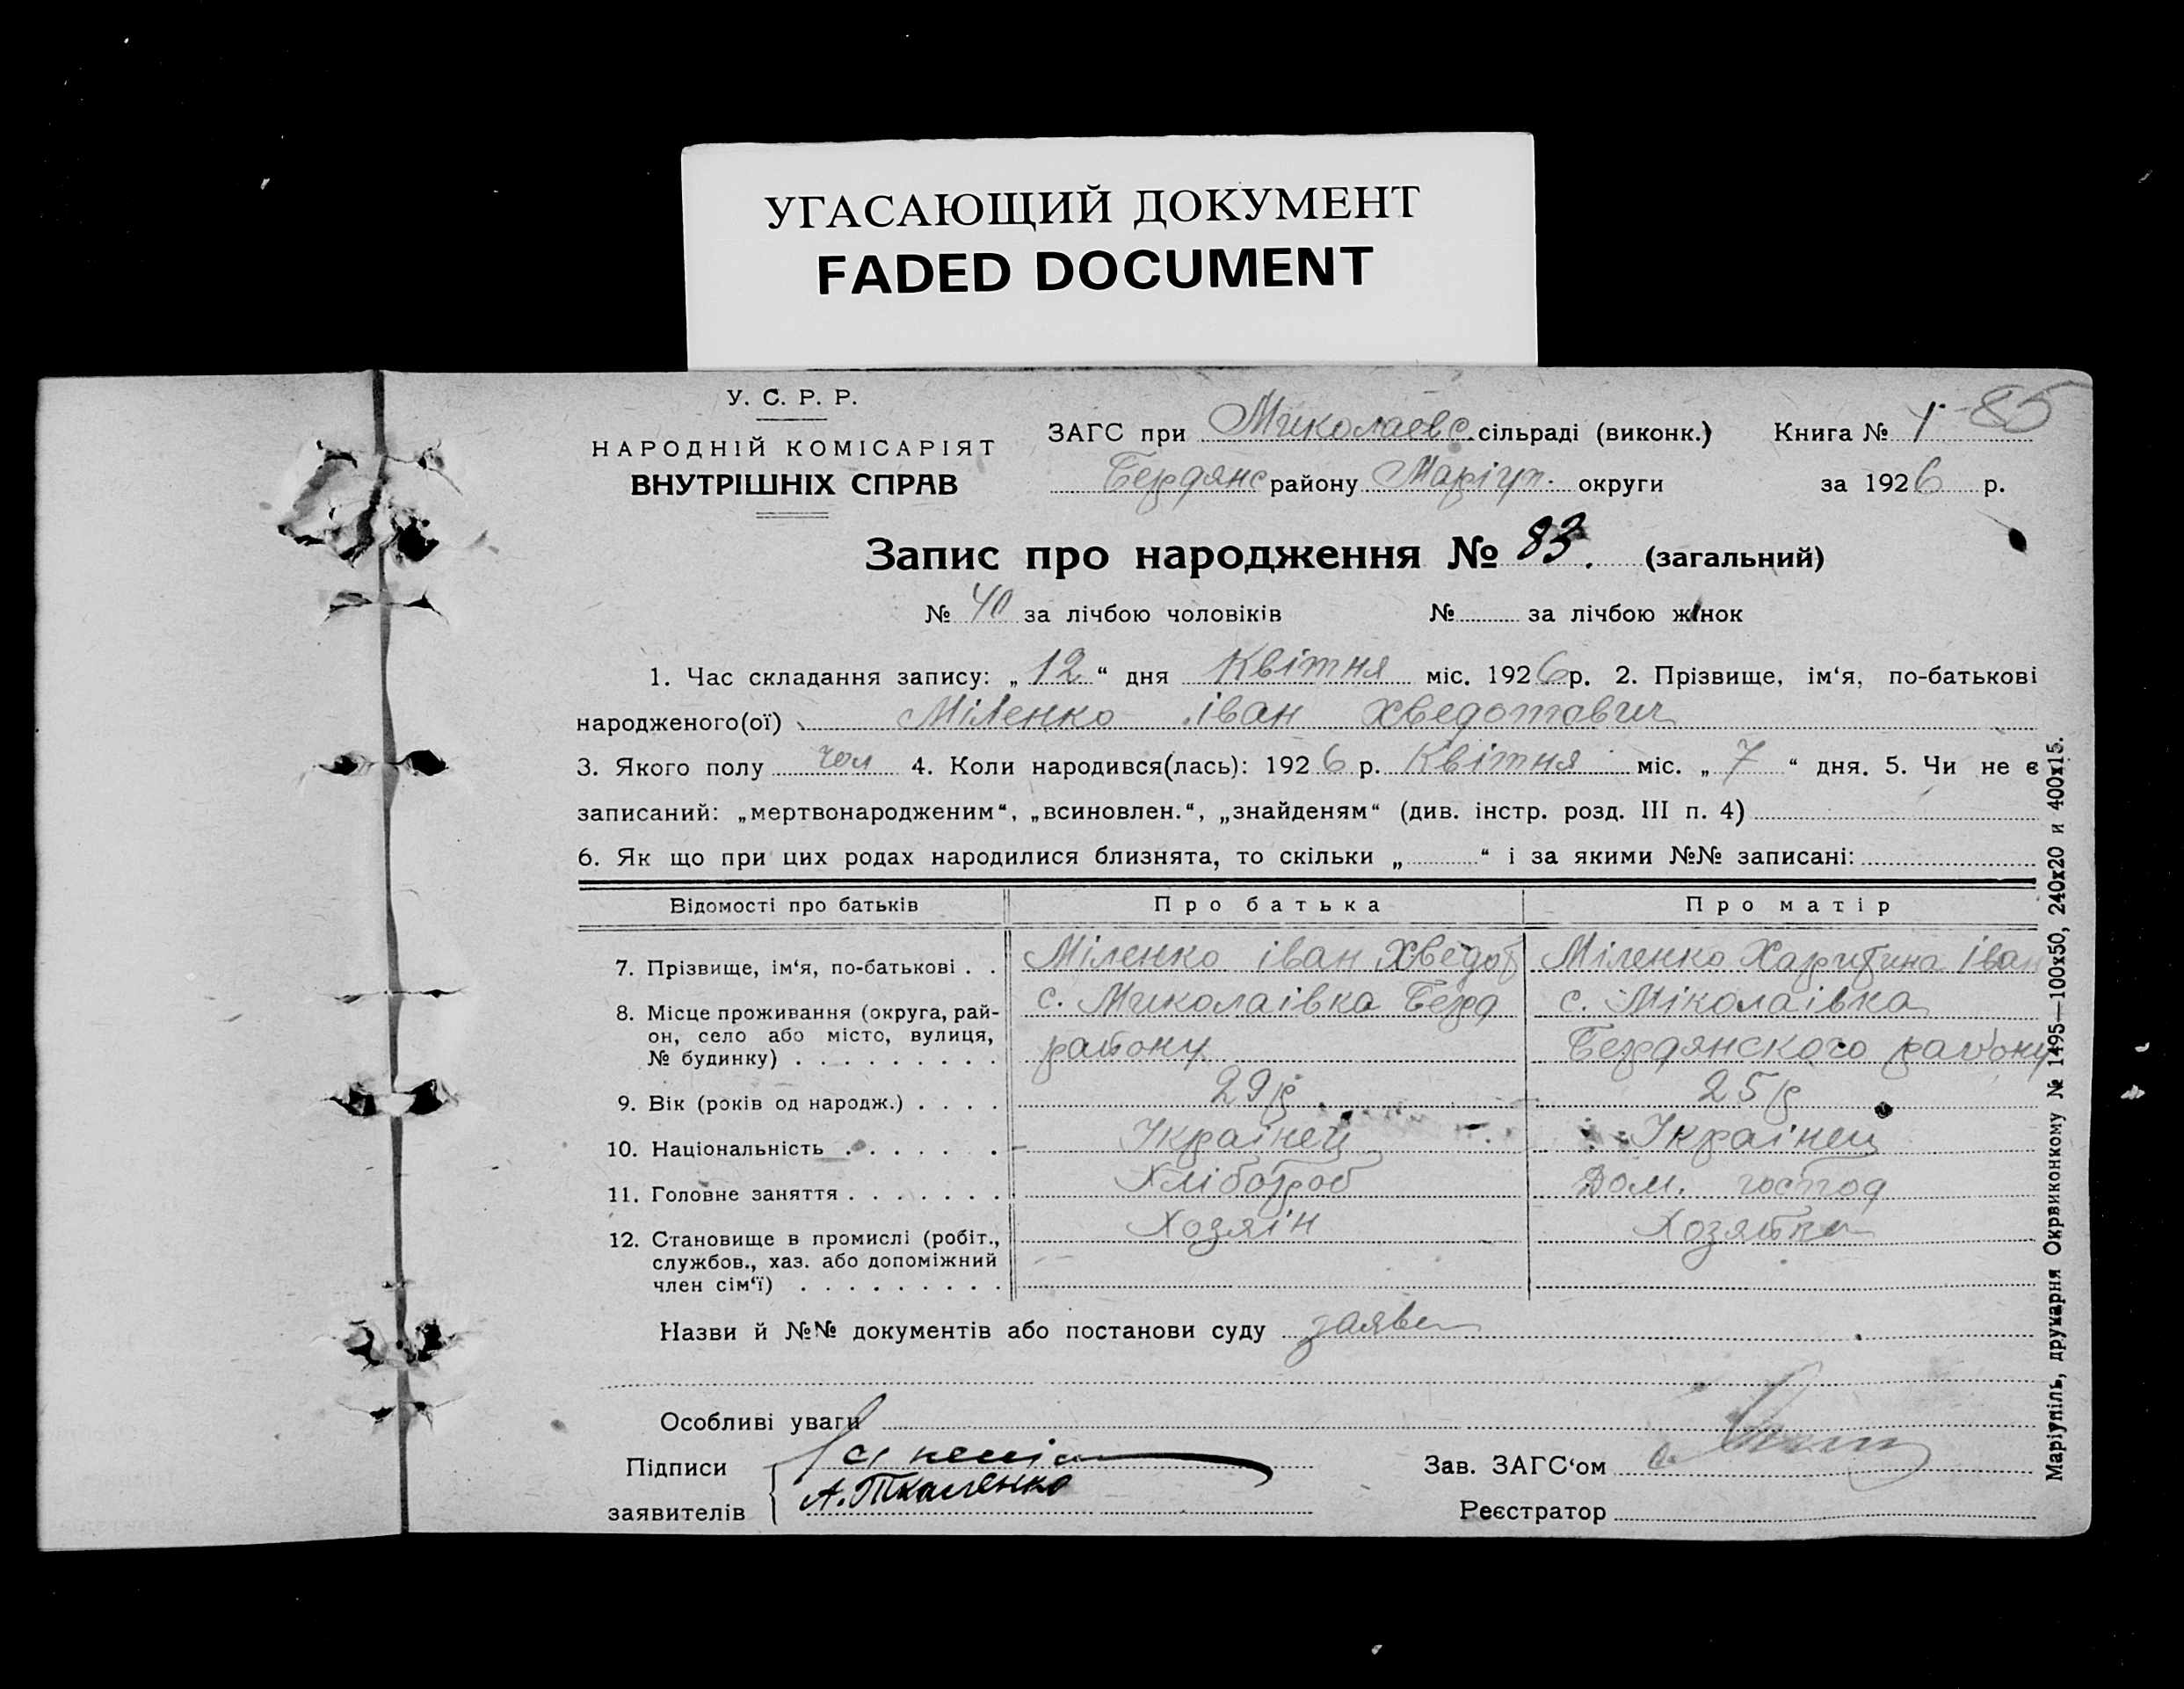 УГАСАЮЩИЙ ДОКУМЕНТ
FADED DOCUMENT
У. С. Р. Р.
НАРОДНІЙ КОМІСАРІЯТ
ВНУТРІШНІХ СПРАВ
ЗАГС при Миколаевс. сільраді (виконк.) Книга № 1 85
Бердянс району Маріуп. округи за 1926 р.
Запис про народження № 83. (загальний)
№ 40 за лічбою чоловіків № за лічбою жінок
1. Час складання запису: „12“ дня Квітня міс. 1926 р. 2. Прізвище, ім‘я, по-батькові
народженого(ої) Міленко іван Хведотович
3. Якого полу чол 4. Коли народився(лась): 1926 р. Квітня міс. „7“ дня. 5. Чи не є
записаний: „мертвонародженим“, „всиновлен.“, „знайденям“ (див. інстр. розд. III п. 4)
6. Як що при цих родах народилися близнята, то скільки „ “ і за якими №№ записані:
Відомості про батьків Про батька Про матір
7. Прізвище, ім‘я, по-батькові . . Міленко іван Хведот Міленко Харитина іван
8. Місце проживання (округа, рай- с. Миколаівка Берд с. Міколаівка
он, село або місто, вулиця,
№ будинку) . . . . . . . . . району Бердянского району
9. Вік (років од народж.) . . . . 29 р 25 р
10. Національність . . . . . . Украінец Украінец
11. Головне заняття . . . . . . . Хлібороб Дом. господ
12. Становище в промислі (робіт., Хозяін Хозяйка
службов., хаз. або допоміжний
член сім‘ї) . . . . . . . . .
Назви й №№ документів або постанови суду заява
Особливі уваги
Підписи
Зав. ЗАГС‘ом
заявителів А. Ткаленко
Реєстратор
Маріупіль, друкарня Окрвиконкому № 1495—100x50, 240x20 и 400x15.